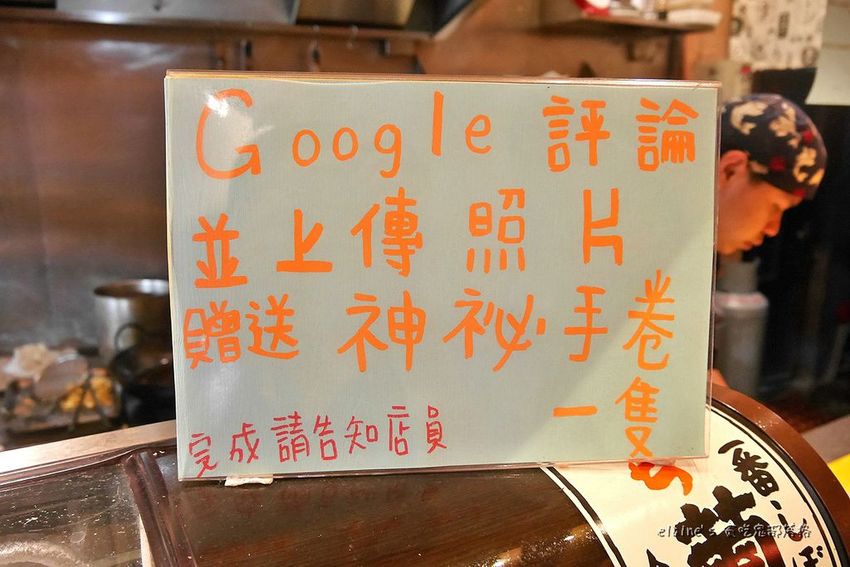 Google 評論
並上傳照片
贈送神祕手卷
一隻
完成請告知店員
一番
elaine's 貪吃鬼部落格